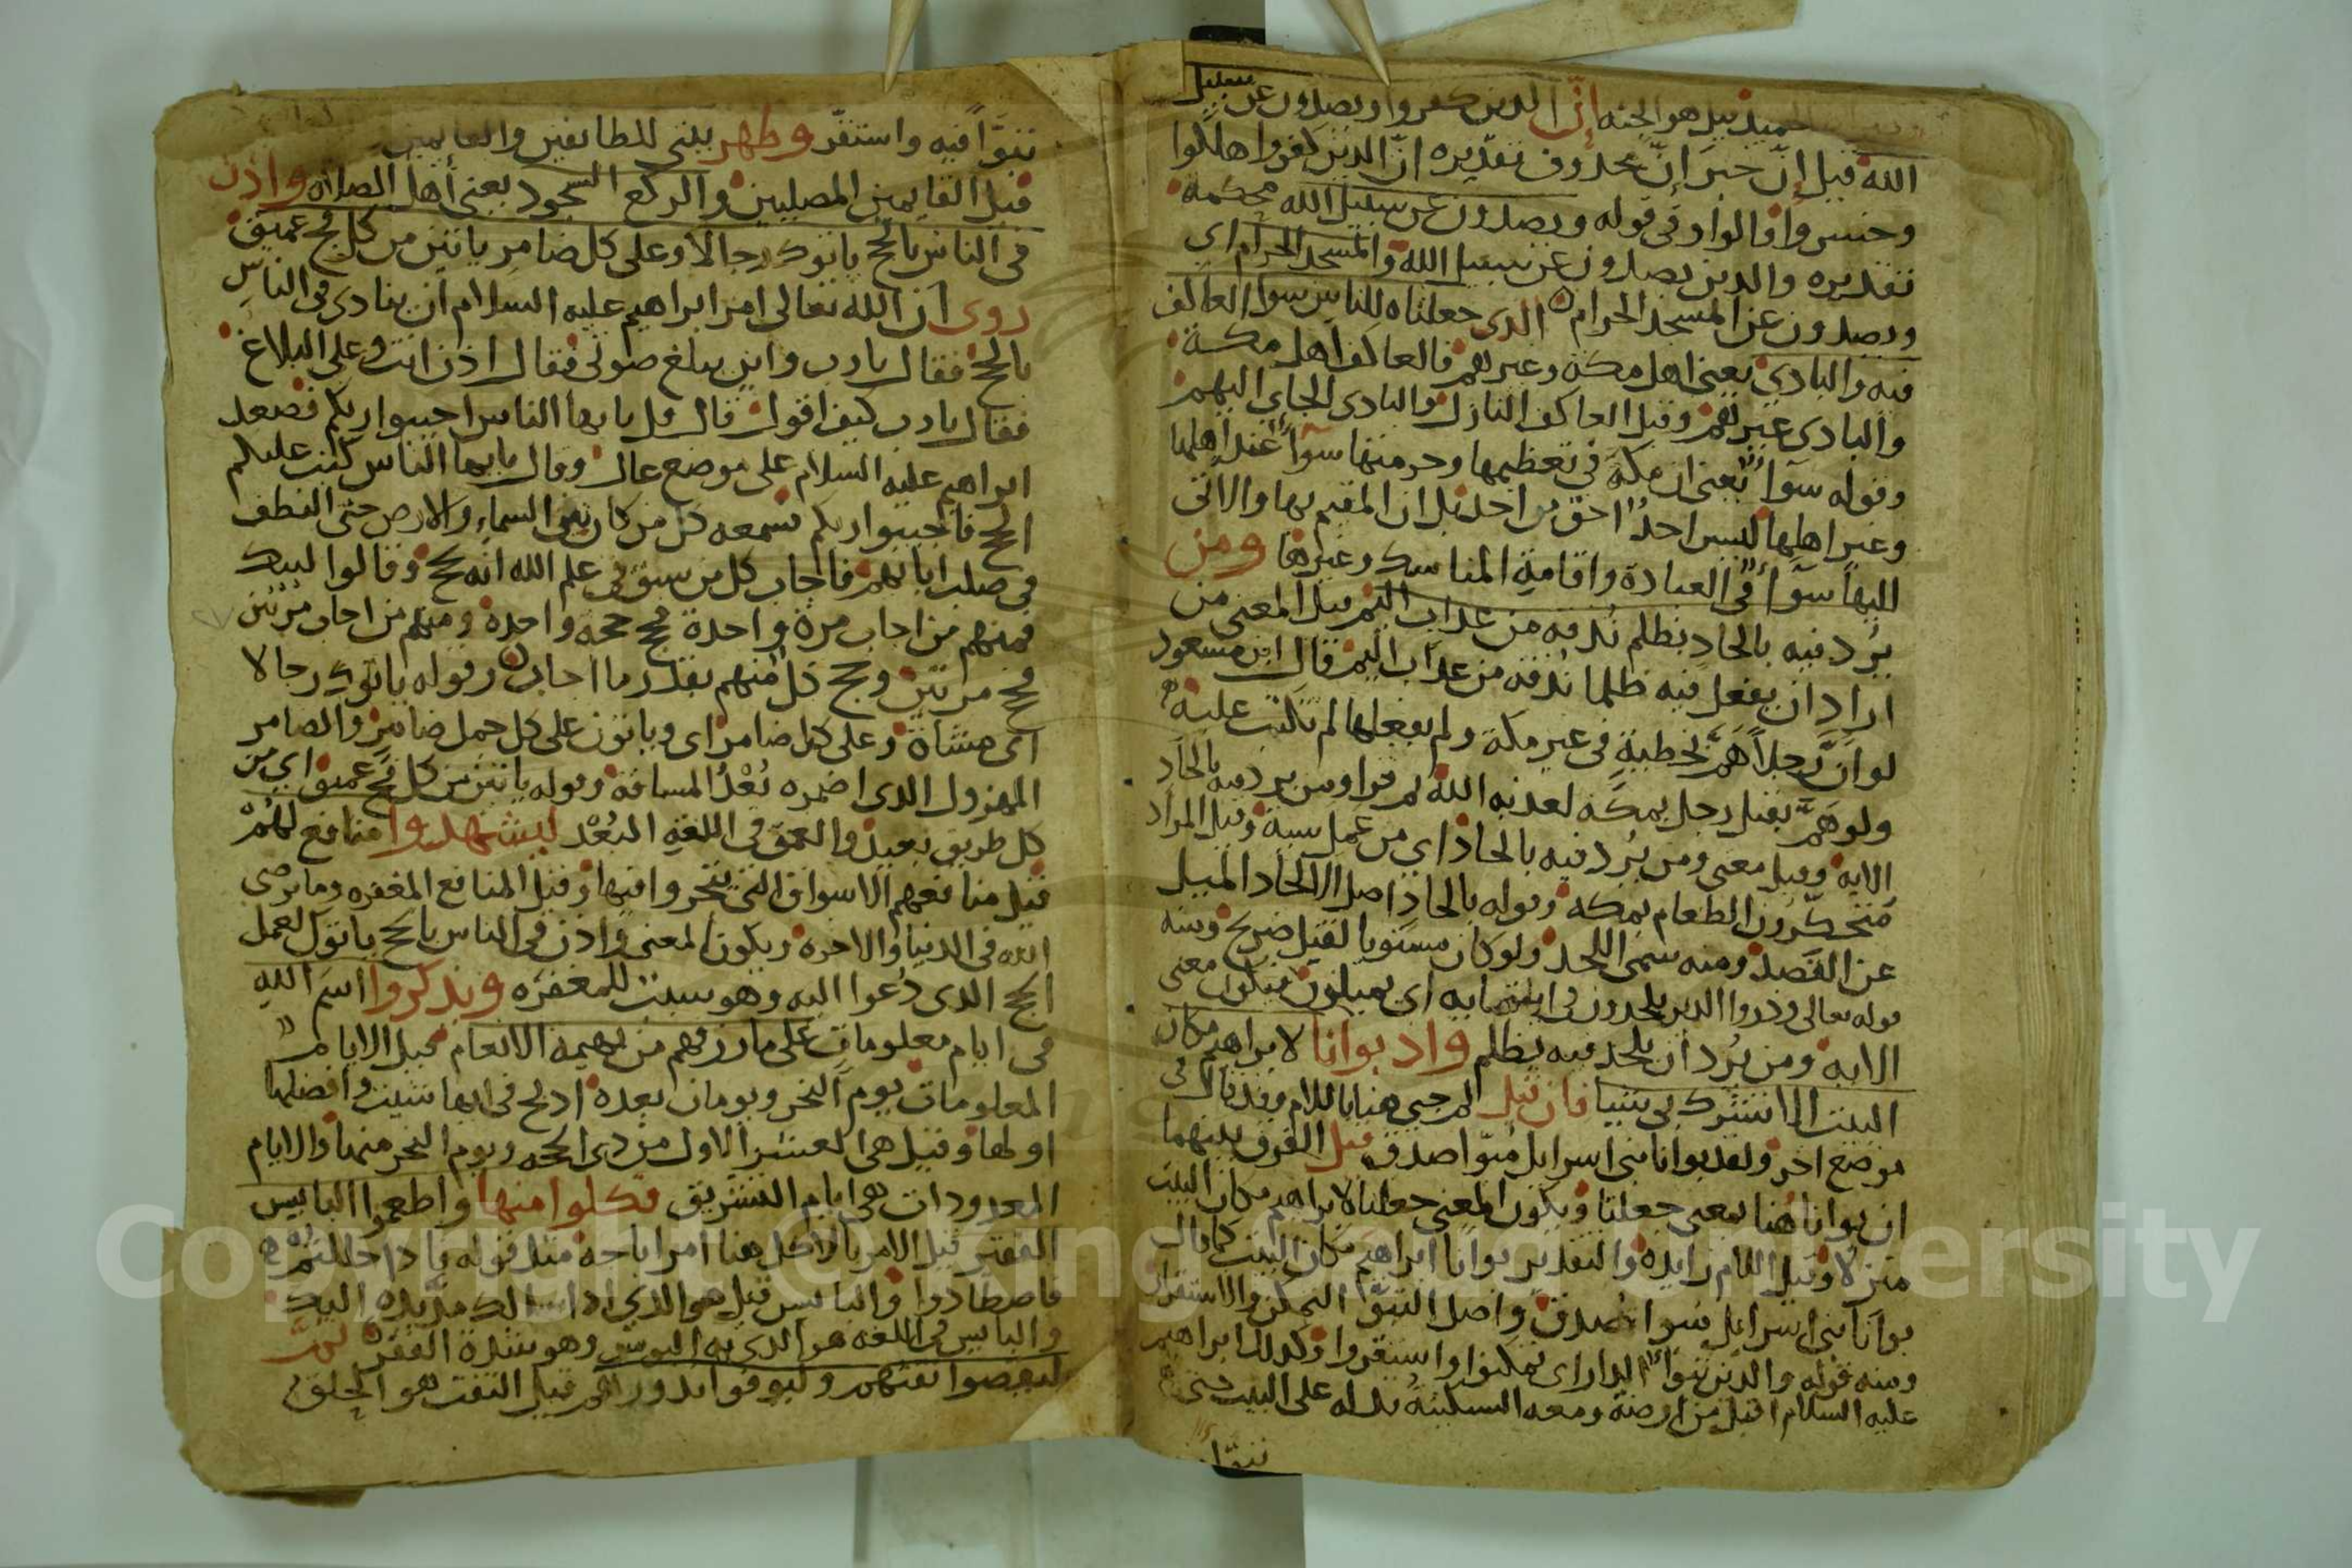 الحميد قيل هو الجنه إنّ الذين كفروا ويصدون عن سبيل
الله قيل إنّ خبرَ إنّ محذوف تقديره انّ الذين كفروا هلكوا
وخسروا فالواو في قوله ويصدون عن سبيل الله محكمة
تقديره والذين يصدون عن سبيل الله والمسجد الحرام اي
ويصدون عن المسجد الحرام الذي جعلناه للناس سوا العاكف
فيه والبادي يعني اهل مكة وغيرهم فالعاكف اهل مكة
والبادي غيرهم وقيل العاكف النازل والبادي الجاي اليهم
وقوله سواءً يعني ان مكة في تعظيمها وحرمتها سواءً عند اهلها
وغير اهلها ليس احدٌ احق من احد بل ان المقيم بها والاتي
اليها سواءً في العبادة واقامة المناسك وغيرها ومن
يُرد فيه بالحاد بظلم نُذقه من عذاب اليم قيل المعنى من
اراد ان يفعل فيه ظلما نُذقه من عذاب اليم قال ابن مسعود
لو انّ رجلاً همّ بخطية في غير مكة ولم يفعلها لم تكتب عليه
ولو همّ بقتل رجل بمكة لعذبه الله ثم قرا ومن يرد فيه بالحاد
الايه وقيل معنى ومن يُرد فيه بالحاد اي من عمل سية وقيل المراد
محتكرون الطعام بمكه وقوله بالحاد اصل الالحاد الميل
عن القصد ومنه سمى اللحد ولو كان مستويا لقيل ضريح ومنه
قوله تعالى وذروا الذين يلحدون في اسمايه اي يميلون فيكون معنى
الايه ومن يُرد أن يلحد فيه بظلم واذ بوانا لابراهيم مكان
البيت الا تشرك بي شيا فان قيل لم جي هنا باللام وقد قال في
موضع اخر ولقد بوانا بني اسرايل مبوّا صدق قيل الفرق بينهما
ان بوانا هنا بمعنى جعلنا ويكون المعنى جعلنا لابراهيم مكان البيت
منزلا وقيل اللام زايده والتقدير بوانا ابراهيم مكان البيت كما قال
بوانا بني اسرايل مبوا صدق واصل التبوّا التمكن والاستقرار
ومنه قوله والذين تبوّا الدار اي تمكنوا واستقروا وكذلك ابراهيم
عليه السلام اقبل من ارمنية ومعه السكينة تدله على البيت حتى
تبوّا
تبوَّاَ فيه واستقرّ وطهر بيتي للطايفين والقايمين
قيل القايمين المصليين والركع السجود يعني أهل الصلاة واذن
في الناس بالحج ياتوك رجالا وعلى كل ضامر ياتين من كل فج عميق
روى ان الله تعالى امر ابراهيم عليه السلام ان ينادي في الناس
بالحج فقال يا رب واين يبلغ صوتي فقال اذن انت وعلي البلاغ
فقال يا رب كيف اقول قال قل يا يها الناس اجيبوا ربكم فصعد
ابراهيم عليه السلام على موضع عال وقال يا يها الناس كتب عليكم
الحج فاجيبوا ربكم فسمعه كل من كان بين السماء والارض حتى النطف
في صلب ابايهم فاجاب كل من سبق في علم الله انه يحج وقالوا لبيك
فمنهم من اجاب مرة واحدة فحج حجه واحدة ومنهم من اجاب مرتين
فحج مرتين وحج كلٌ منهم بقدر ما اجاب وقوله ياتوك رجالا
اى مشاة وعلى كل ضامر اى وياتون على كل جمل ضامر والضامر
المهزول الذى اضمره بُعْدُ المسافة وقوله ياتين من كل فج عميق اي من
كل طريق بعيد والعمق في اللغه البُعْد ليشهدوا منافع لهُمْ
قيل منافعهم الاسواق التى يتجروا فيها وقيل المنافع المغفره وما يرضي
الله في الدنيا والاخرة ويكون المعنى واذن في الناس بالحج ياتوك لعمل
الحج الذى دُعوا اليه وهو سبب للمغفره ويذكروا اسم الله
في ايام معلومات على ما رزقهم من بهيمة الانعام قيل الايام
المعلومات يوم النحر ويومان بعده اذبح في ايها شيت وافضلها
اولها وقيل هي العشر الاول من ذي الحجه ويوم النحر منها والايام
المعدودات هي ايام التشريق فكلوا منها واطعموا البايس
الفقير قيل الامر بالاكل هنا امر اباحه مثل قوله فاذا حللتم
فاصطادوا والبايس قيل هو الذي اذا سالك مدّ يده اليك
والبايس في اللغه هو الذي به البوس وهو شدة الفقر ثمّ
ليقضوا تفثهم وليوفوا نذورهم قيل التفث هو الحلق
Copyright © King Saud University